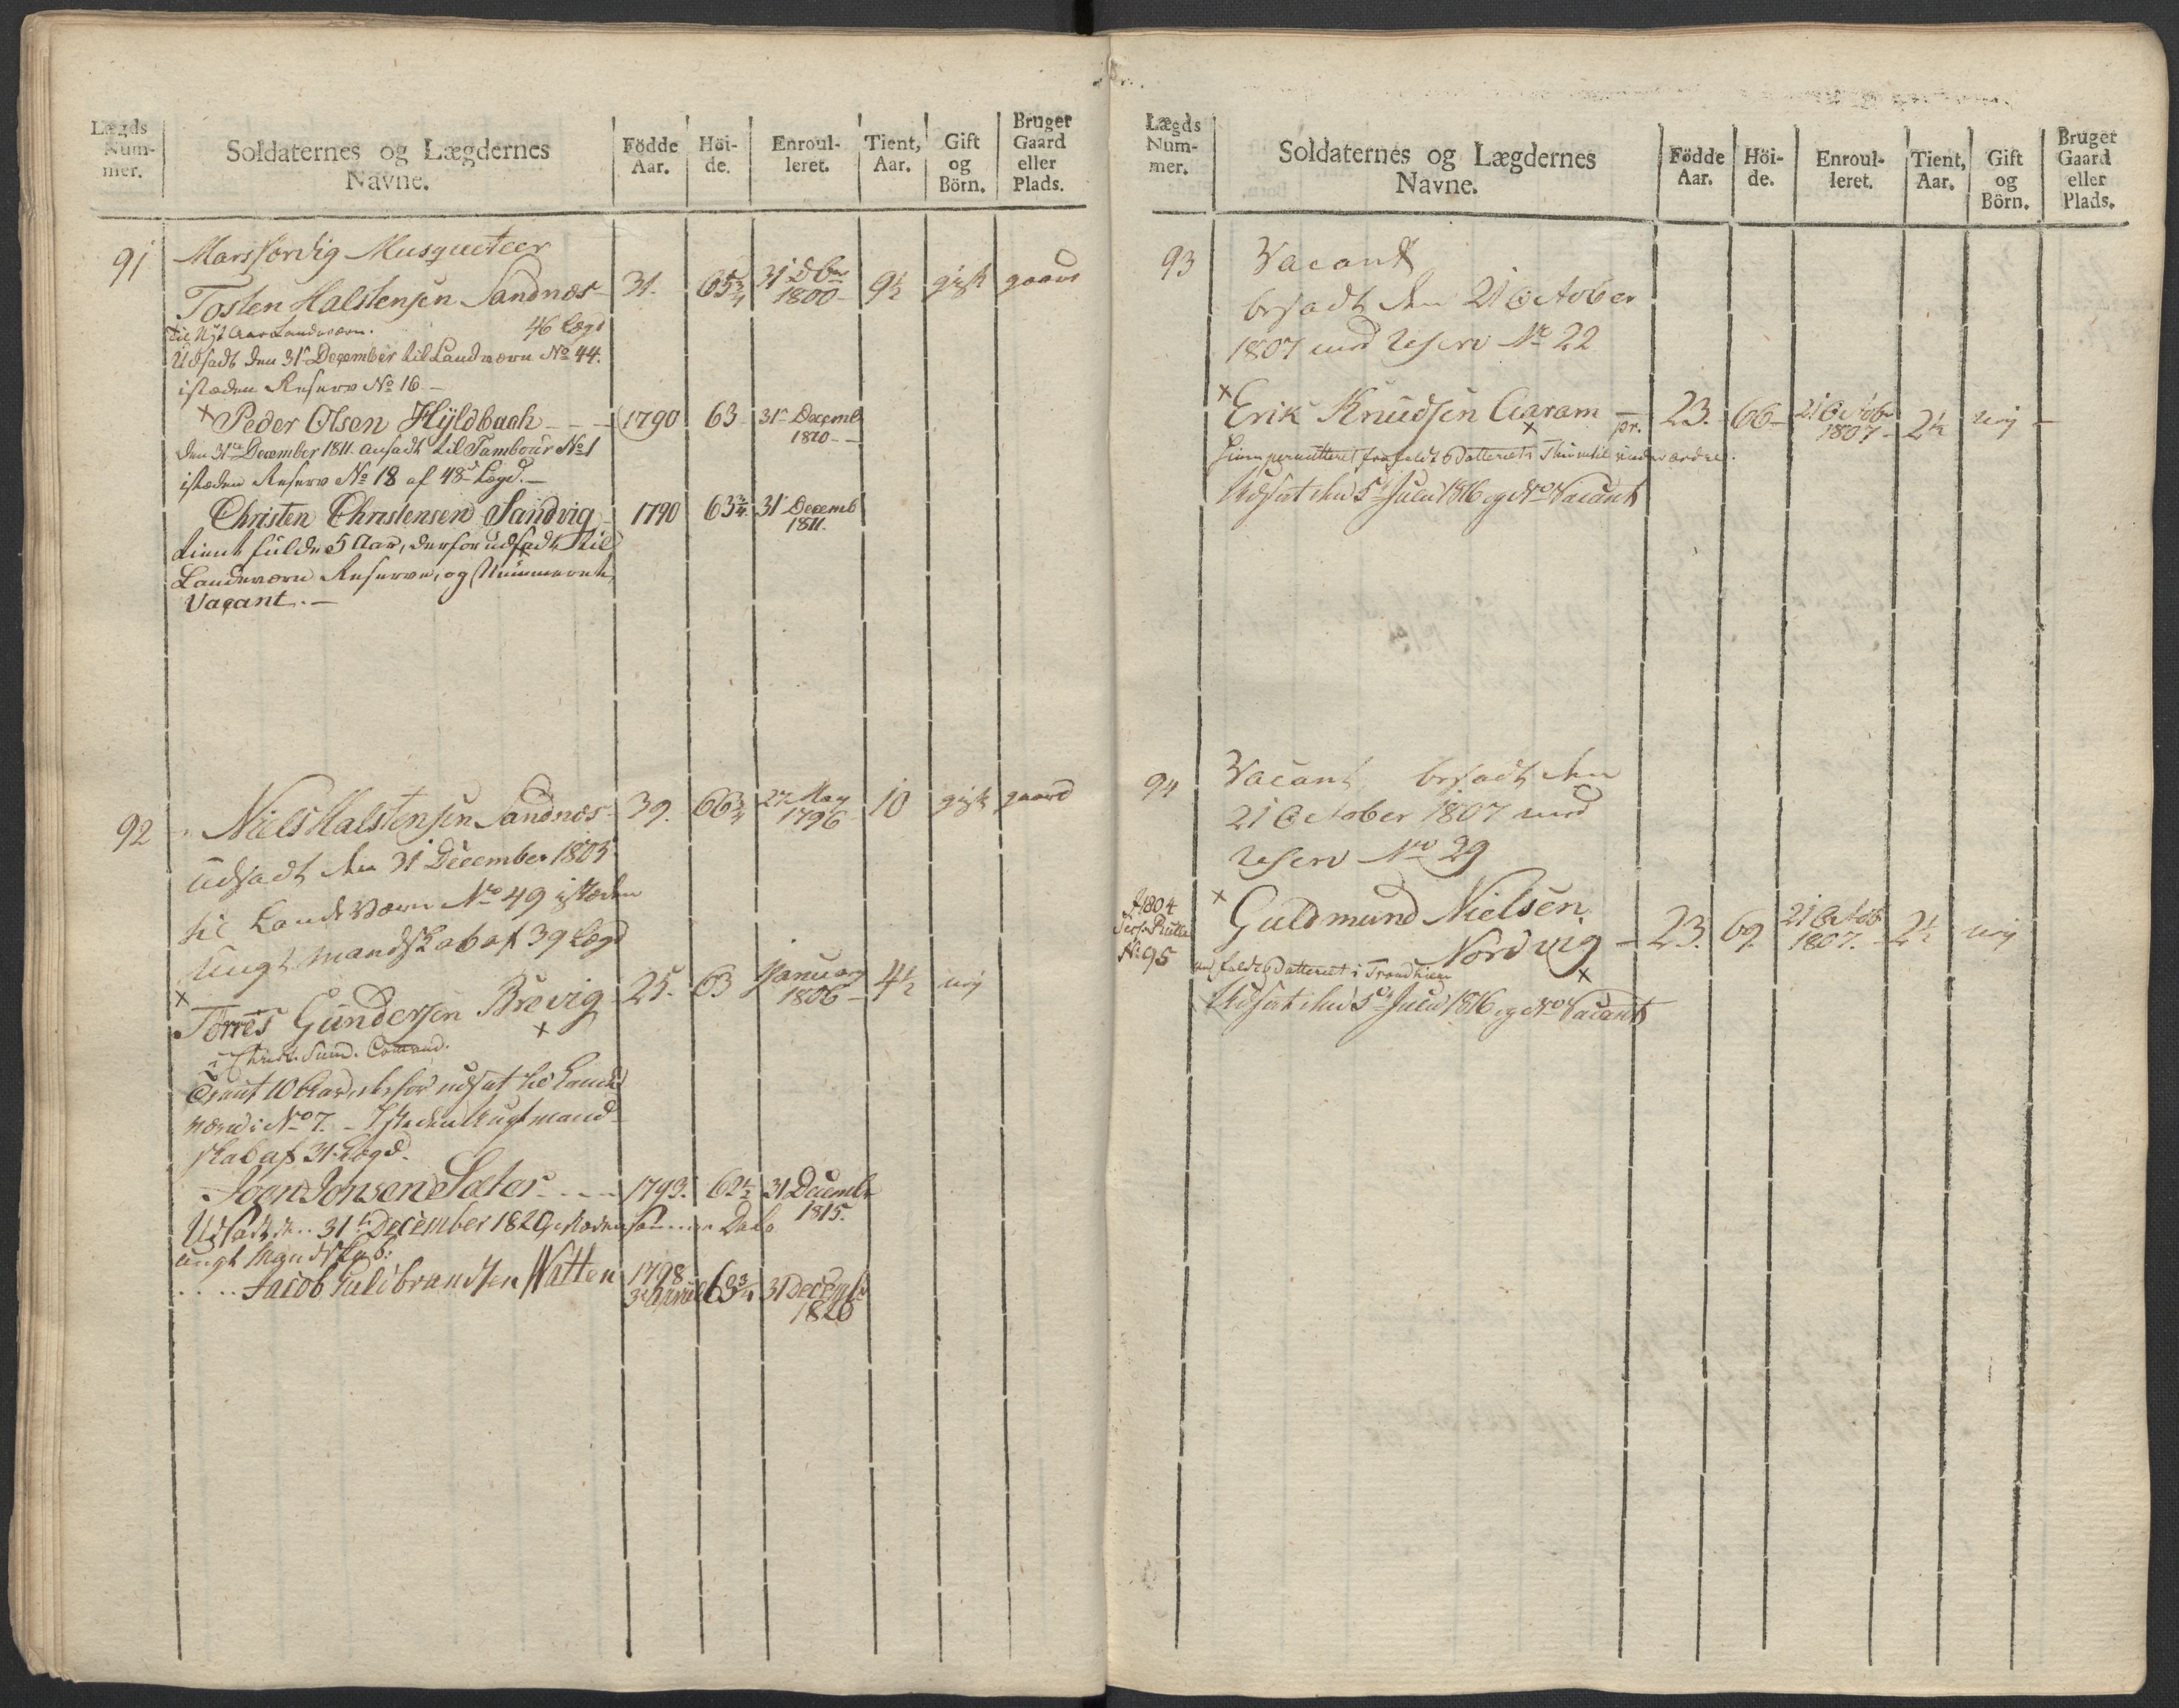 Lægds Num- mer.
Soldaternes og Lægdernes Navne.
Födde Aar.
Höi- de.
Enroul- leret.
Tient, Aar.
Gift og Börn.
Bruger Gaard eller Plads.
91 Marsfærdig Musqueteer
Tosten Halstensen Sandnæs 31. 65¾ 31 Dbr 1800 9½ gift gaard
46 Lægd
Udsadt den 31te December til Landværn No 44.
isteden Reserv No 16
× Peder Olsen Hÿldbach 1790 63 31te Decemb 1810
den 31te December 1811 ansadt til Tambour No 1
isteden Reserv No 18 af 48de Lægd.
Christen Christensen Sandvig 1790 63¾ 31 Decemb 1811.
tient fulde 5 Aar, derfor udsadt til
Landeværn Reserve, og Nummeret
Vacant.
92 Niels Halstensen Sandnæs 39. 66¾ 27 May 1796 10 gift gaard
Udsadt den 31 December 1805
til Lande Værn No 49 isteden
Ungt Mandskab af 39 Lægd
× Torres Gundersen Brevig 25. 63 Januar 1806 4½ uej
×
i Christ. Sund. Comand.
Tient 10 Aar, derfor udsat til Land
værn i No 7. Isteden Ungt mand
skab af 31 Lægd.
Joen Jonsen Sæter 1793. 62½ 31 Decembr 1815.
Udsadt d. 31te December 1820, isteden samme Dato
ungt Mandskab:
Jacob Guldbrandsen Watten 1798 63¾ 31 Decembr 1820
Lægds Num- mer.
Soldaternes og Lægdernes Navne.
Födde Aar.
Höi- de.
Enroul- leret.
Tient, Aar.
Gift og Börn.
Bruger Gaard eller Plads.
93 Vacant
besadt den 21 October
1807 med Reserv No 22
× Erik Knudsen Aaram 23. 66 21 Octobr 1807 2½ uej
×
Udsat den 5te Julii 1816 og No Vacant
94 Vacant besadt den
21 October 1807 med
Reserv No 29
× Guldmund Nielsen
Nordvig 23. 69. 21 Octob 1807. 2½ uej
×
I 1804
Rulle
No 95
Feldt Batteriet i Trondhiem
Udsat den 5te Julii 1816 og No Vacant